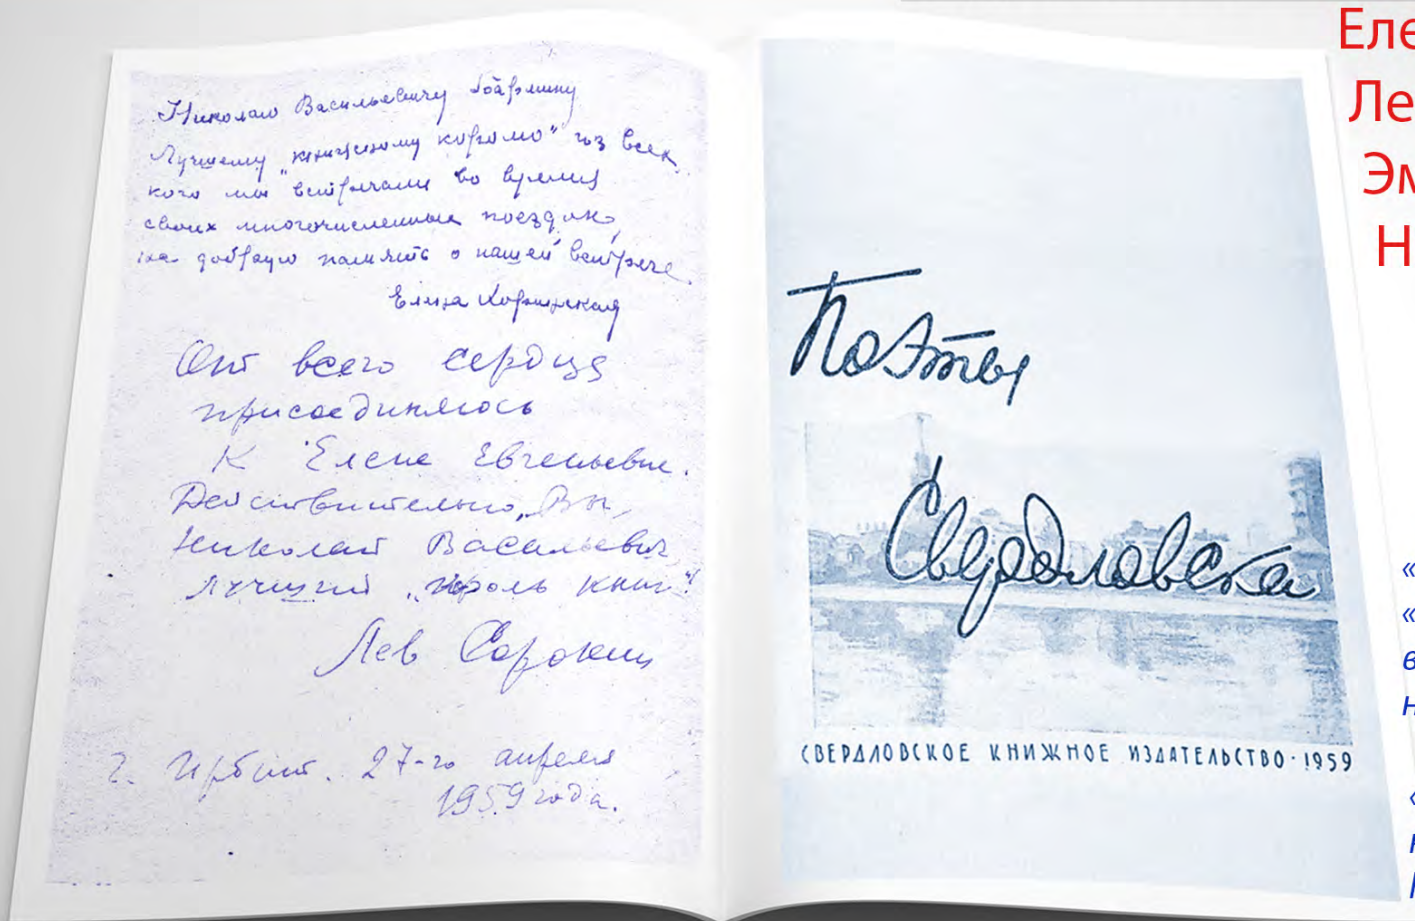 Николаю Васильевичу
Лучшему „книжному королю“ из всех
кого мы встречали во время
своих многочисленных поездок,
на добрую память о нашей встрече
Елена Хоринская
От всего сердца
присоединяюсь
к Елене Евгеньевне.
Действительно, Вы,
Николай Васильевич
лучший „король книг“!
Лев Сорокин
г. Ирбит. 27-го апреля
1959 года.
Поэты
Свердловска
СВЕРДЛОВСКОЕ КНИЖНОЕ ИЗДАТЕЛЬСТВО · 1959
Еле
Ле
Эм
Н
«
«
в
н
«